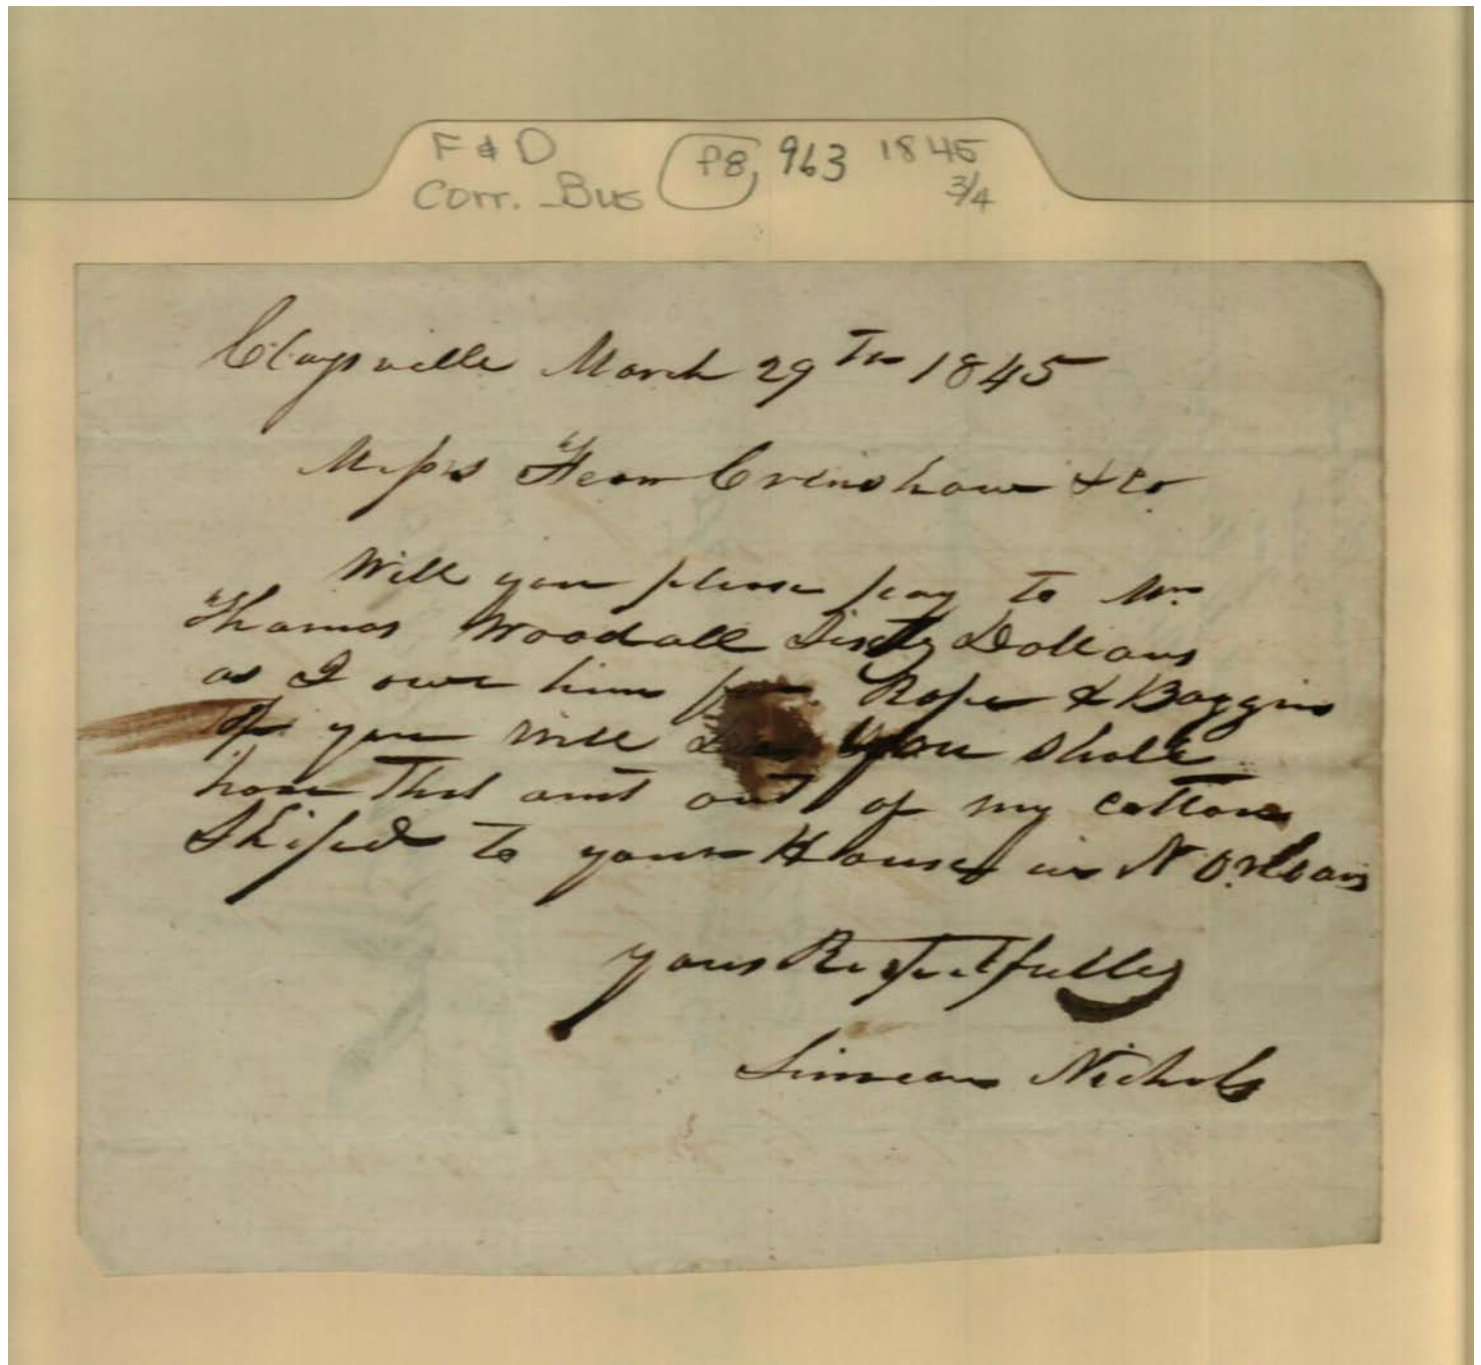 F & D
Corr. - Bus
P8, 963 1845
3/4
Claysville March 29Th 1845
Messrs Fearn Crenshaw & Co
Will you please pay to Mr
Thomas Woodall Sixty Dollars
as I owe him for Rope & Baggin
If you will you shall
have that amt out of my cotton
Shiped to your House in N Orleans
yours Respectfully
Simeon Nichols